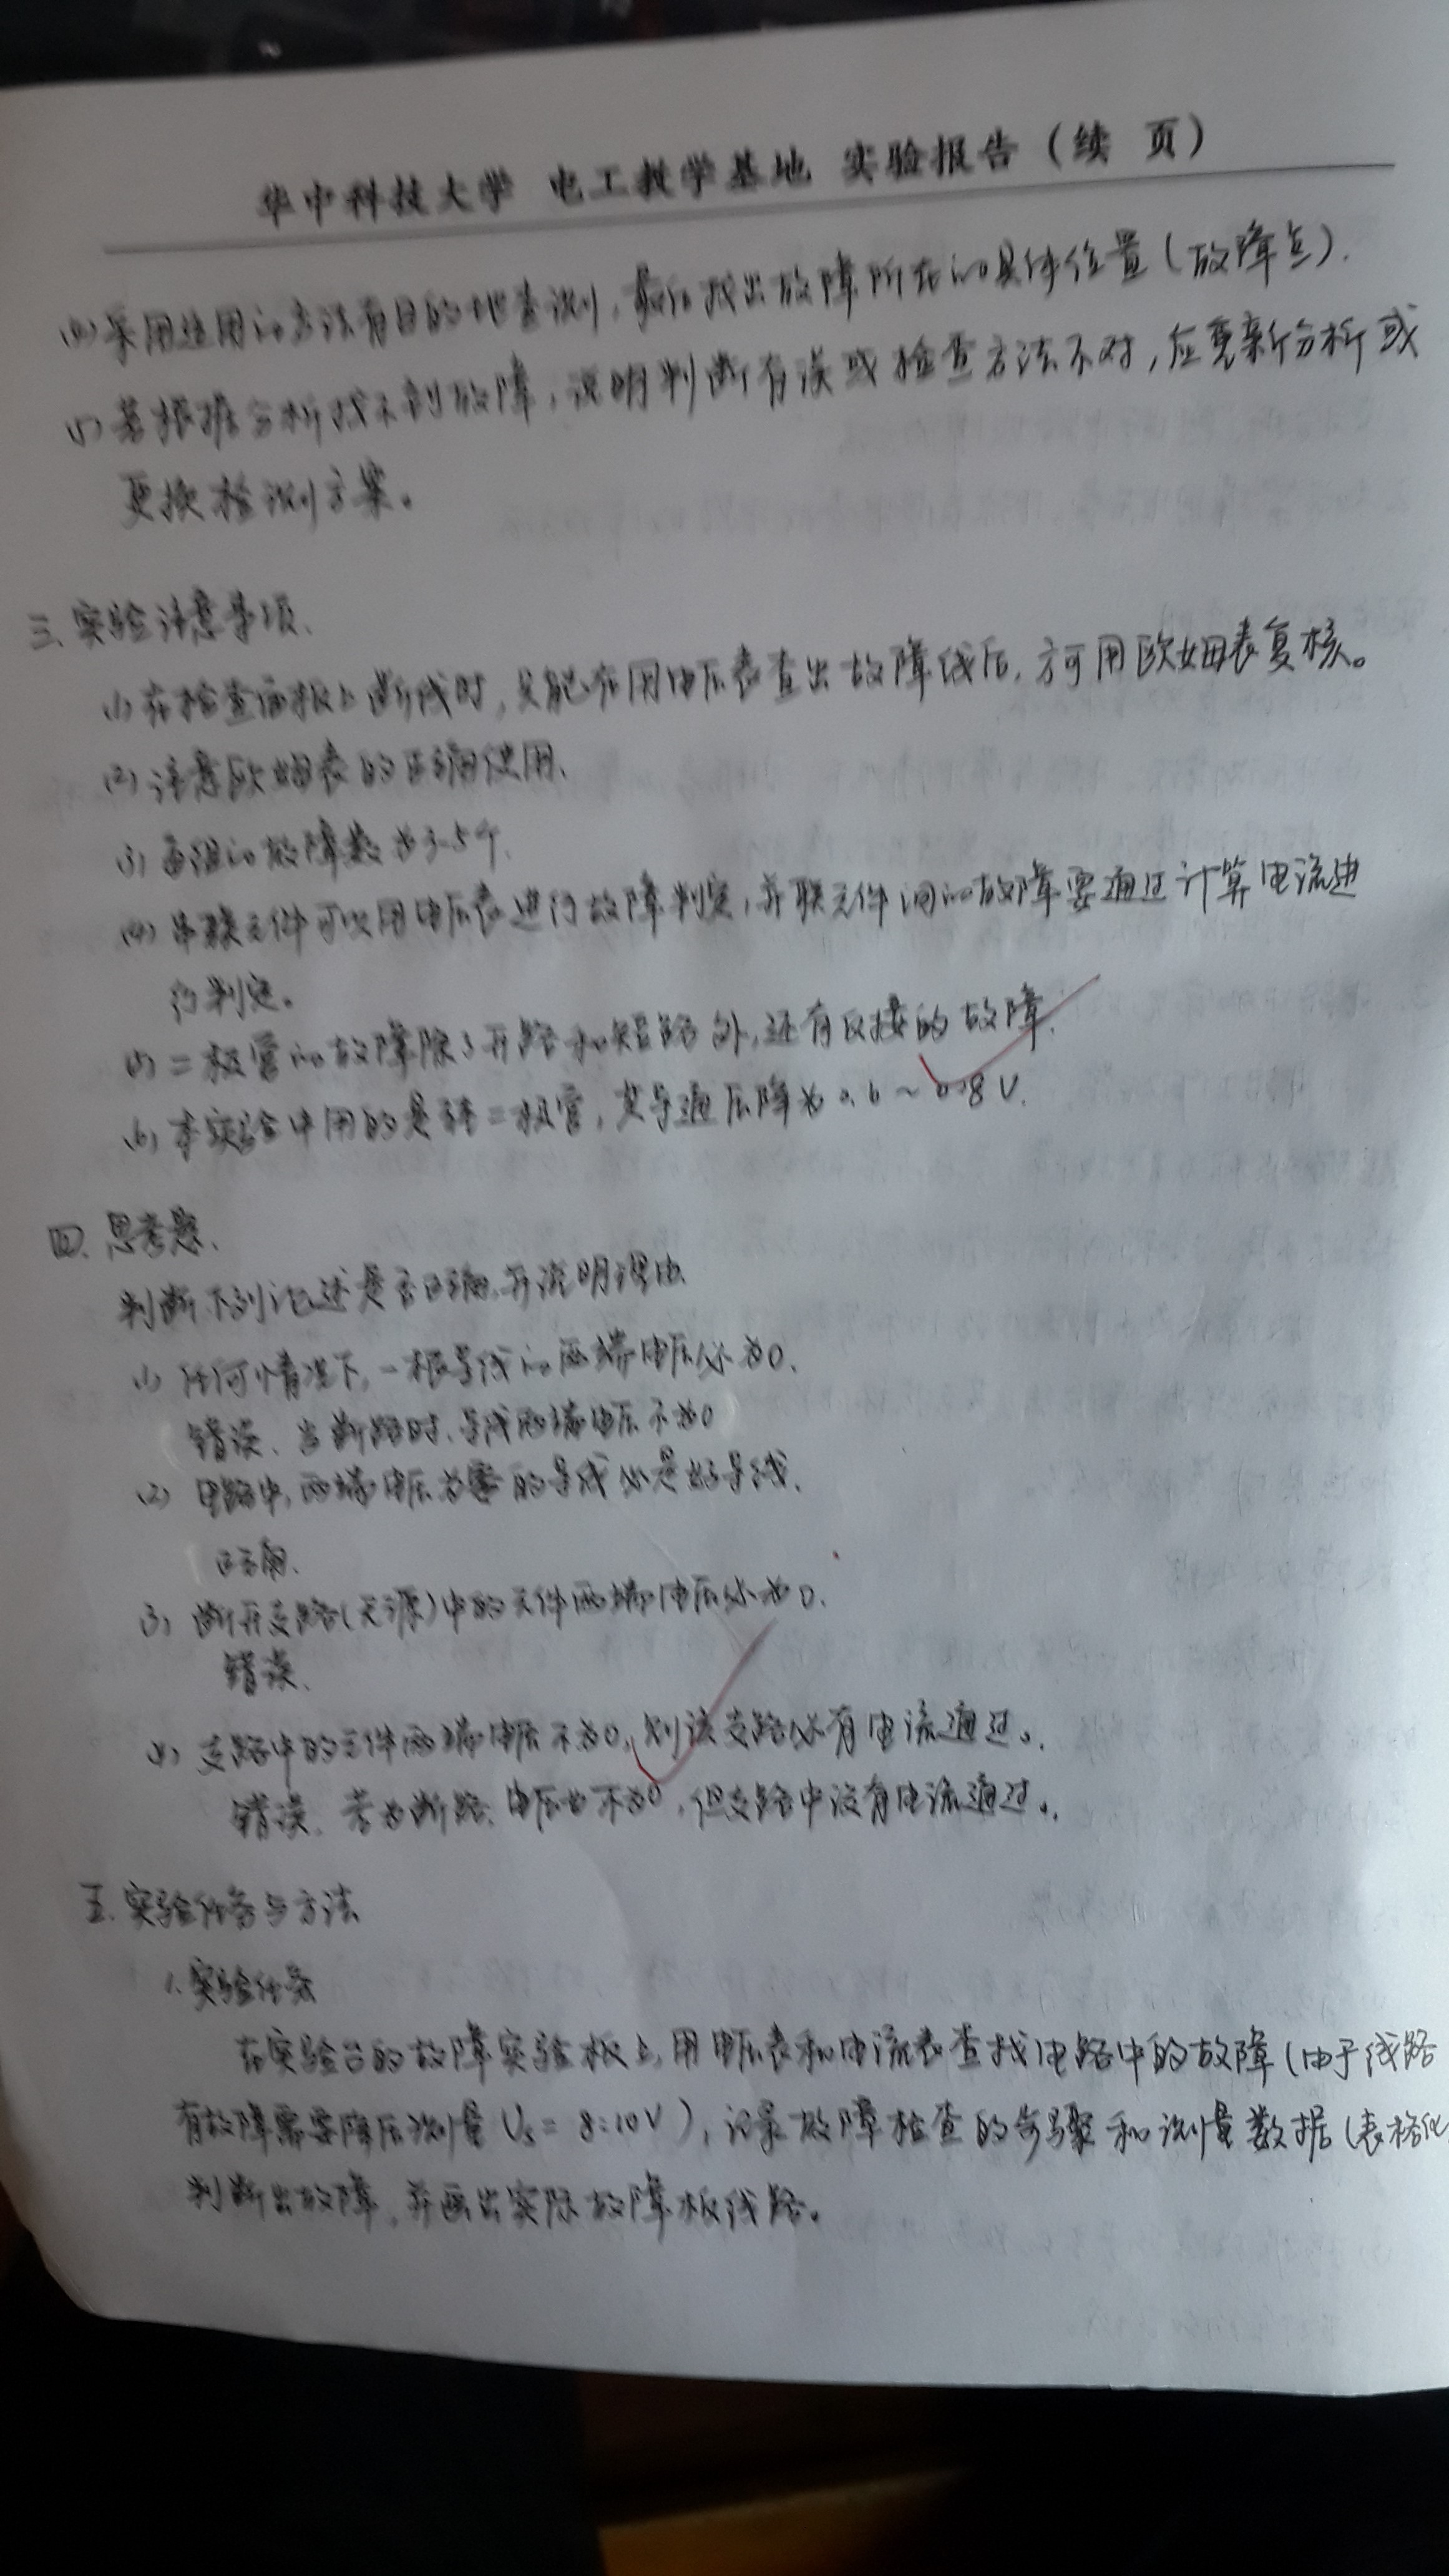 华中科技大学 电工教学基地 实验报告（续 页）
(4) 采用适用的方法有目的地查测，最后找出故障所在的具体位置（故障点）.
(5) 若根据分析找不到故障，说明判断有误或检查方法不对，应重新分析或
更换检测方案。
三. 实验注意事项.
(1) 在检查面板上断线时，只能在用电压表查出故障线后，方可用欧姆表复核。
(2) 注意欧姆表的正确使用.
(3) 每组的故障数为3-5个.
(4) 串联元件可以用电压表进行故障判定，并联元件间的故障要通过计算电流进
行判定。
(5) 二极管的故障除了开路和短路外，还有反接的故障.
(6) 本实验中用的是硅二极管，其导通压降为0.6～0.8V.
四. 思考题.
判断下列论述是否正确，并说明理由.
(1) 任何情况下，一根导线的两端电压必为0.
错误、当断路时、导线两端电压不为0
(2) 电路中，两端电压为零的导线必是好导线.
正确.
(3) 断开支路(无源)中的元件两端电压必为0.
错误.
(4) 支路中的元件两端电压不为0，则该支路必有电流通过。
错误、若为断路，电压也不为0，但支路中没有电流通过。
五. 实验任务与方法
1. 实验任务
在实验台的故障实验板上，用电压表和电流表查找电路中的故障（由于线路
有故障需要降压测量 Us = 8:10V），记录故障检查的步骤和测量数据（表格化
判断出故障，并画出实际故障板线路。